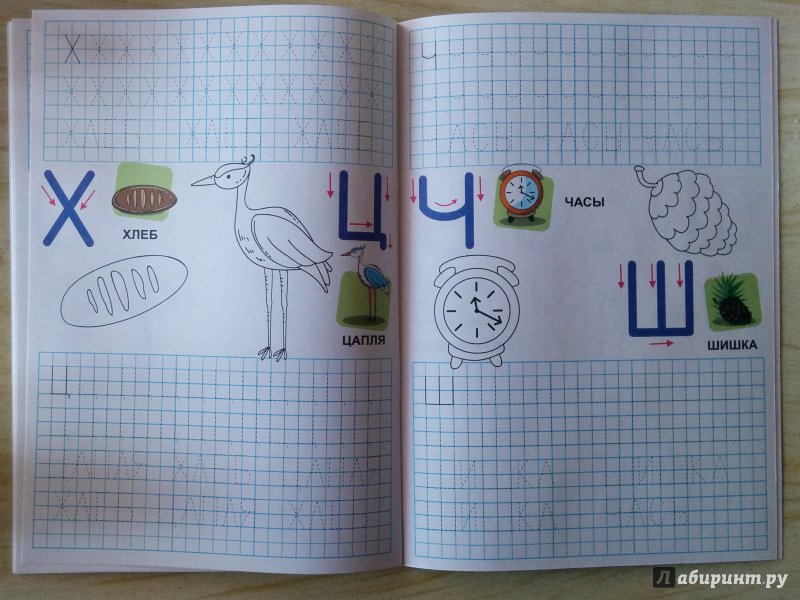 Х Х Х Х Х Х Х Х Х Х Х Х Х
Х Х Х Х Х Х Х Х Х Х Х Х Х
ХЛЕБ ХЛЕБ ХЛЕБ
Х
ХЛЕБ
Ц
ЦАПЛЯ
Ц
ЦАПЛЯ ХЛЕБ ЦАПЛЯ
ХЛЕБ ЦАПЛЯ ХЛЕБ
Ч
ЧАСЫ ЧАСЫ ЧАСЫ
Ч
ЧАСЫ
Ш
ШИШКА
Ш
ШИШКА ШИШКА
ШИШКА ЧАСЫ
Лабиринт.ру